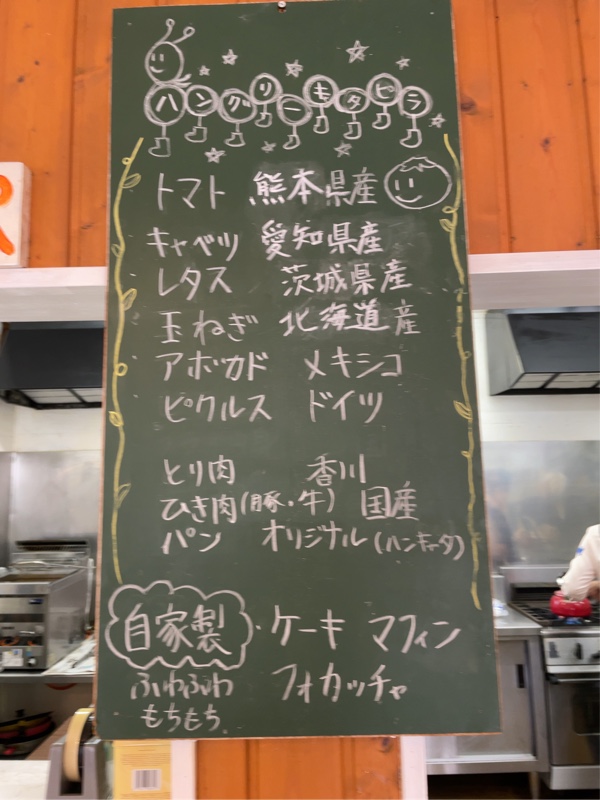 ハングリーキタピラ
トマト 熊本県産
キャベツ 愛知県産
レタス 茨城県産
玉ねぎ 北海道産
アボカド メキシコ
ピクルス ドイツ
とり肉 香川
ひき肉(豚・牛) 国産
パン オリジナル(ハンキータ)
自家製 ケーキ マフィン
ふわふわ フォカッチャ
もちもち